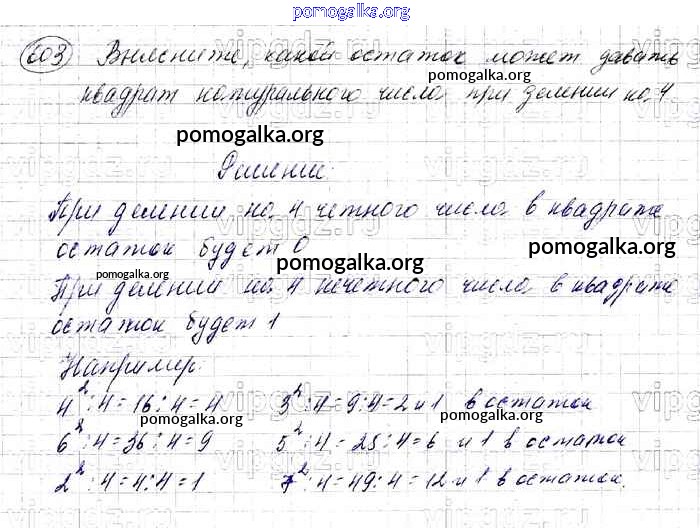 pomogalka.org
603 Выясните, какой остаток может давать
pomogalka.org
квадрат натурального числа при делении на 4
pomogalka.org
Решение:
При делении на 4 четного числа в квадрате
остаток будет 0
pomogalka.org
pomogalka.org
pomogalka.org
При делении на 4 нечетного числа в квадрате
остаток будет 1
Например:
4² : 4 = 16 : 4 = 4 3² : 4 = 9 : 4 = 2 и 1 в остатке
pomogalka.org pomogalka.org
6² : 4 = 36 : 4 = 9 5² : 4 = 25 : 4 = 6 и 1 в остатке
pomogalka.org
2² : 4 = 4 : 4 = 1 7² : 4 = 49 : 4 = 12 и 1 в остатке.